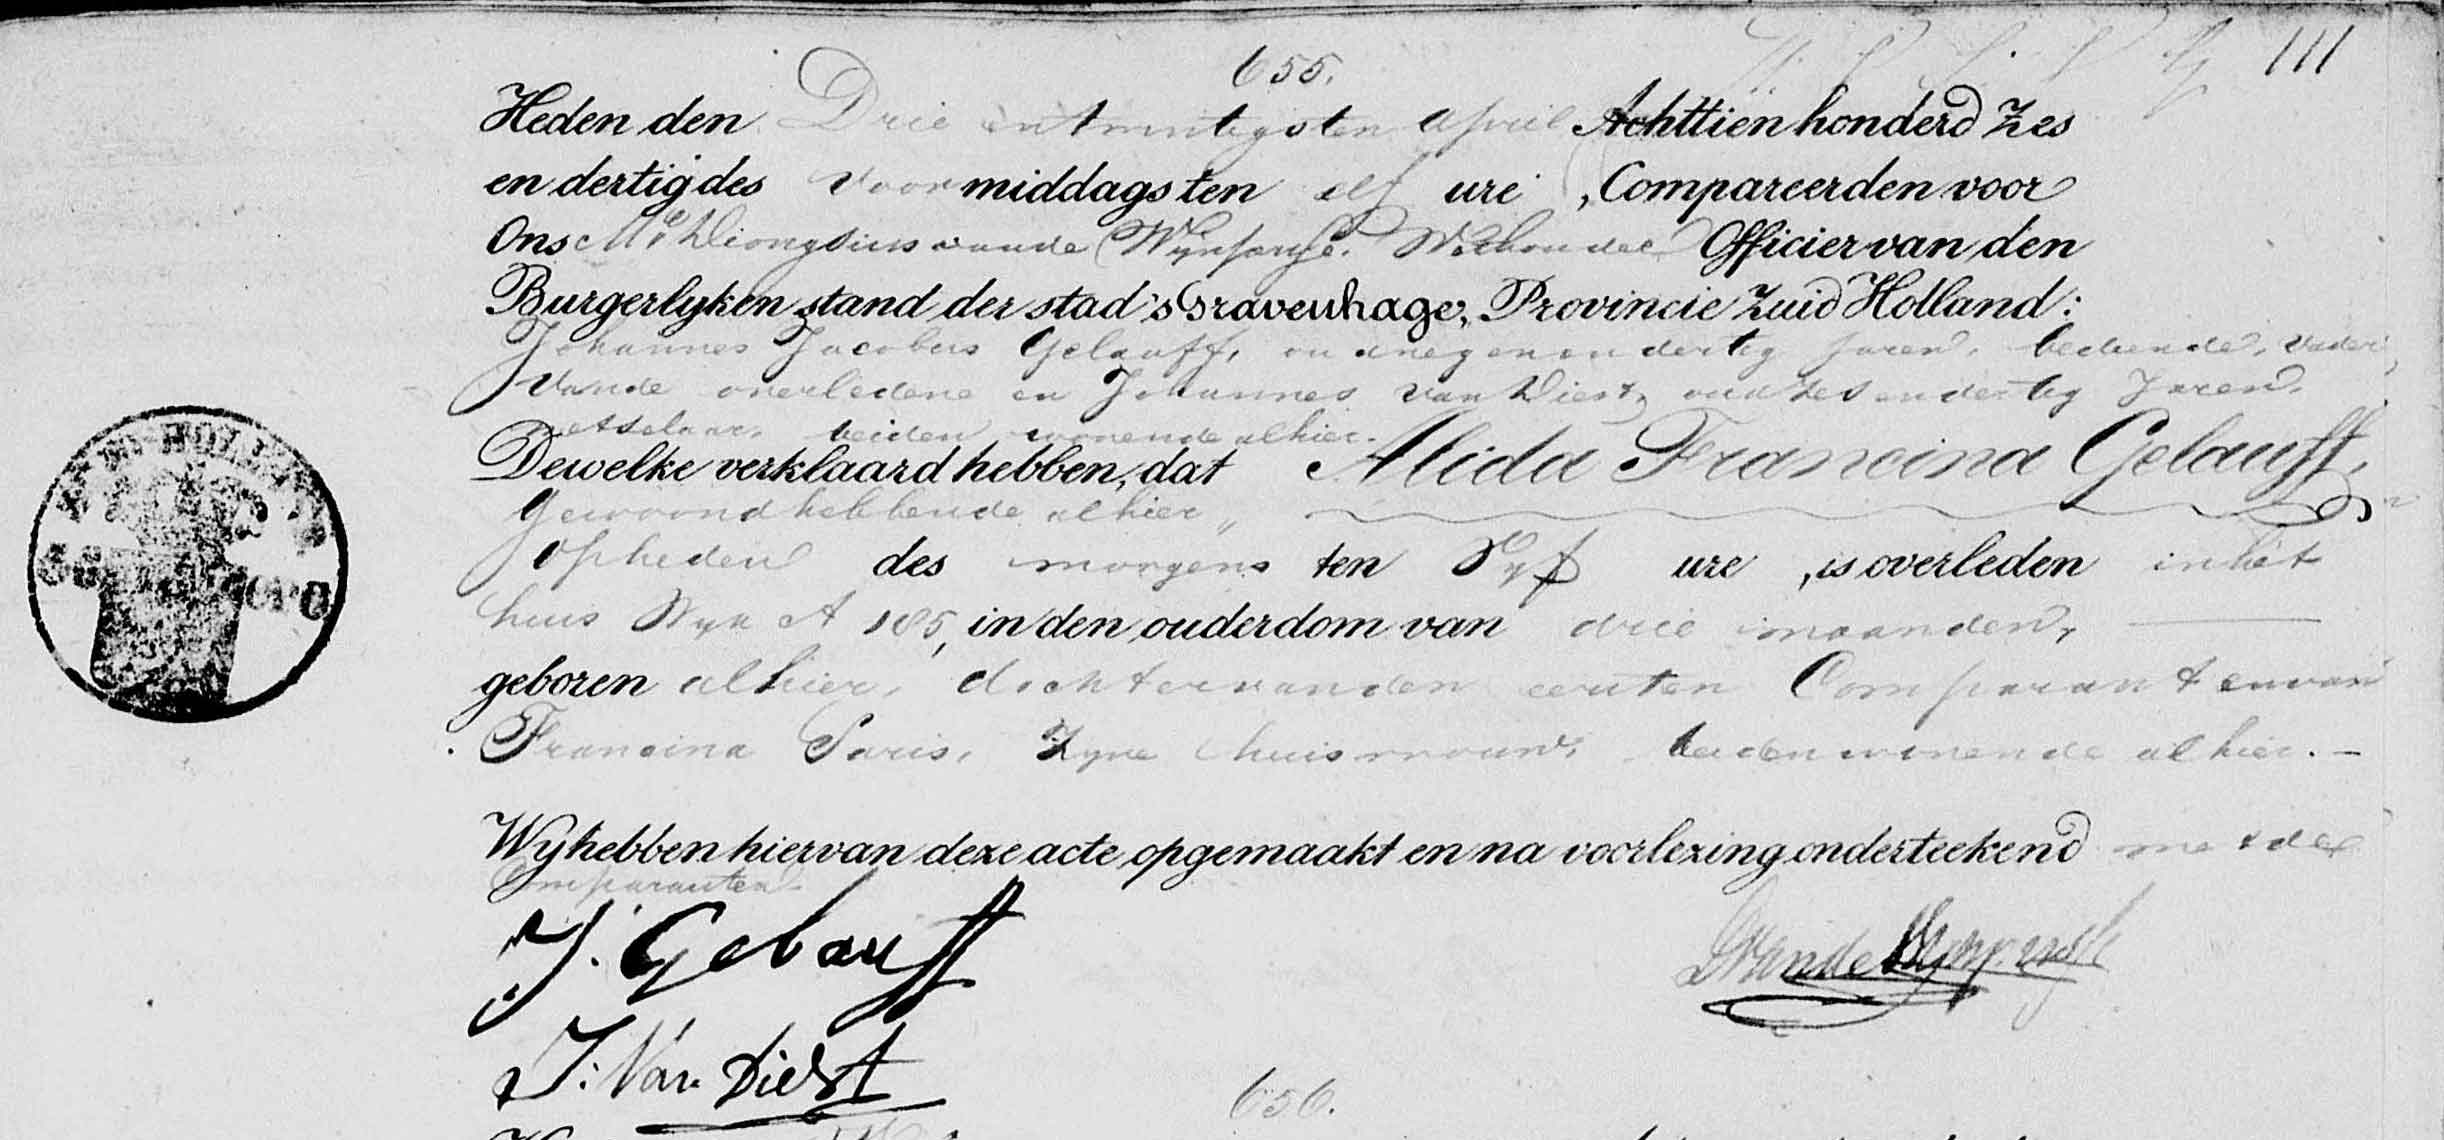 111
655.
Heden den Drie en twintigsten April Achttien honderd Zes
en dertig des Voormiddags ten elf ure, Compareerden voor
Ons Mr. Dionysius vande Wynpersse. Wethouder Officier van den
Burgerlyken stand der stad 's Gravenhage, Provincie Zuid Holland:
Johannes Jacobus Gelauff, oud negenendertig Jaren, bediende, Vader
Vande overledene en Johannes Van Diest, oud zesendertig Jaren
metselaar, beiden wonende alhier.
Dewelke verklaard hebben, dat Alida Francina Gelauff,
Gewoond hebbende alhier,
Op heden des morgens ten Vyf ure, is overleden in het
huis Wyk A 185, in den ouderdom van drie maanden,
geboren alhier, dochter van den eersten Comparant en van
Francina Saris, Zyne huisvrouw, beiden wonende alhier.
Wy hebben hiervan deze acte opgemaakt en na voorlezing onderteekend met de
Comparanten
J. Gelauff
DvandeWynpersse
J: Van Diest
656.